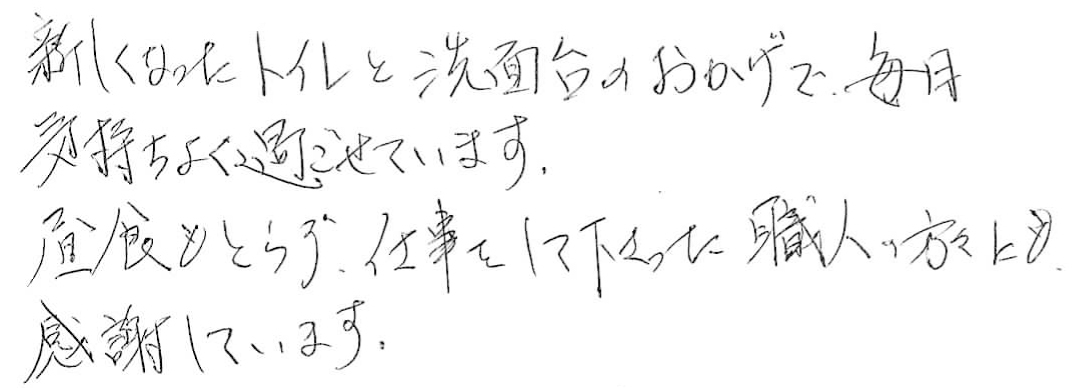 新しくなったトイレと洗面台のおかげで、毎日
気持ちよく過ごせています。
昼食もとらず、仕事をして下さった職人の方々にも、
感謝しています。